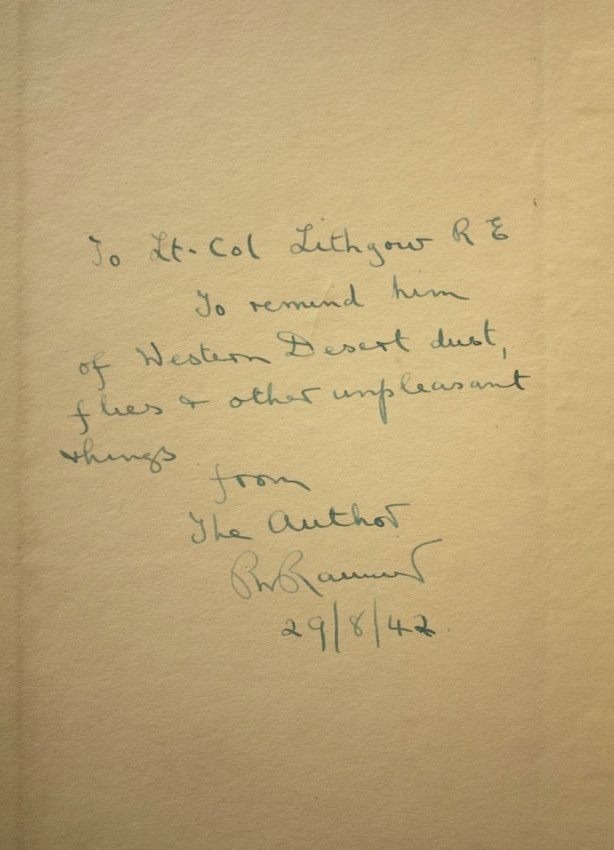 To Lt-Col Lithgow R E
To remind him
of Western Desert dust,
flies & other unpleasant
things
from
The Author
29/8/42.